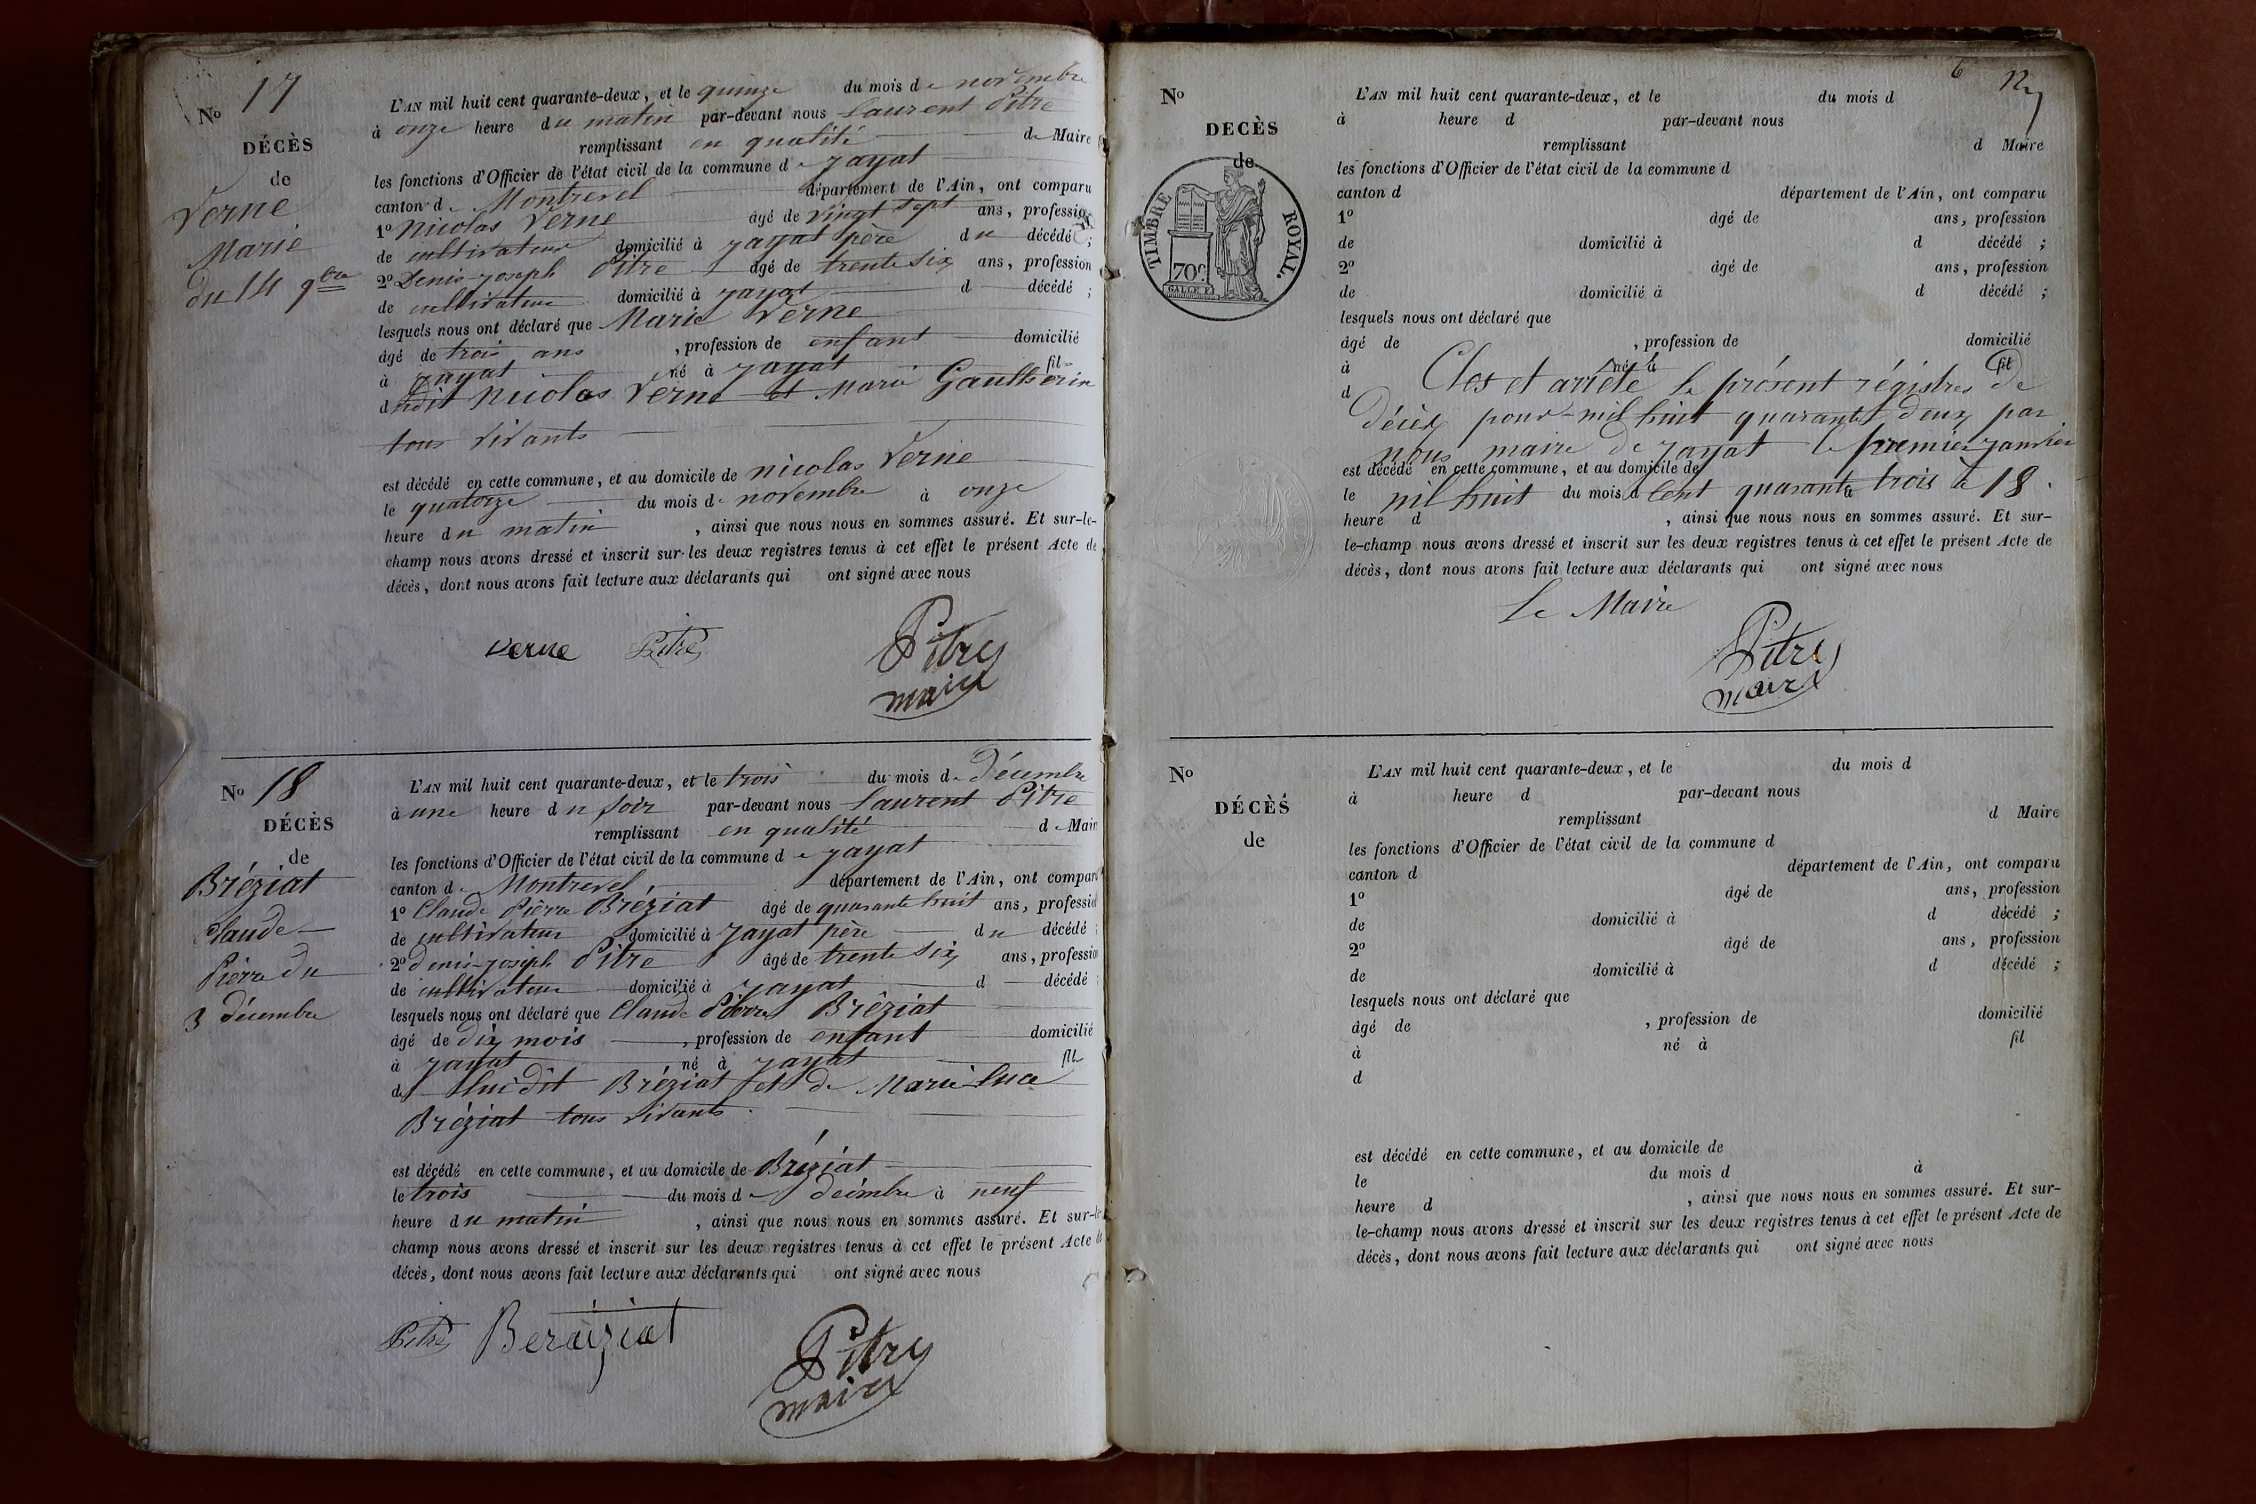 No 17
DÉCÈS
de
Verne
Marie
du 14 9bre
L'AN mil huit cent quarante-deux, et le quinze du mois de novembre
à onze heure du matin par-devant nous Laurent Pitre
remplissant en qualité de Maire
les fonctions d'Officier de l'état civil de la commune de jayat
canton de Montrevel département de l'Ain, ont comparu
1o Nicolas Verne âgé de vingt sept ans, profession
de cultivateur domicilié à jayat père du décédé ;
2o Denis-joseph Pitre âgé de trente six ans, profession
de cultivateur domicilié à jayat d décédé ;
lesquels nous ont déclaré que Marie Verne
âgé de trois ans , profession de enfant domicilié
à jayat né à jayat fil
dudit Nicolas Verne et Marie Gautherin
tous vivants
est décédé en cette commune, et au domicile de nicolas Verne
le quatorze du mois de novembre à onze
heure du matin , ainsi que nous nous en sommes assuré. Et sur-le-
champ nous avons dressé et inscrit sur les deux registres tenus à cet effet le présent Acte de
décès, dont nous avons fait lecture aux déclarants qui ont signé avec nous
verne Pitre Pitre
maire
No 18
DÉCÈS
de
Bréziat
Claude
Pierre du
3 décembre
L'AN mil huit cent quarante-deux, et le trois du mois de Décembre
à une heure du soir par-devant nous Laurent Pitre
remplissant en qualité de Mair
les fonctions d'Officier de l'état civil de la commune de jayat
canton de Montrevel département de l'Ain, ont compar
1o Claude Pierre Bréziat âgé de quarante huit ans, professi
de cultivateur domicilié à jayat père du décédé ;
2o denis-joseph Pitre âgé de trente six ans, professio
de cultivateur domicilié à jayat d décédé ;
lesquels nous ont déclaré que Claude Pierre Bréziat
âgé de dix mois , profession de enfant domicilié
à jayat né à jayat fils
de Bréziat et de Marie Luce
Bréziat tous vivants
est décédé en cette commune, et au domicile de Bréziat
le trois du mois de decémbre à neuf
heure du matin , ainsi que nous nous en sommes assuré. Et sur-le
champ nous avons dressé et inscrit sur les deux registres tenus à cet effet le présent Acte de
décès, dont nous avons fait lecture aux déclarants qui ont signé avec nous
Pitre Beraiziat Pitre
maire
No
DECÈS
de
TIMBRE ROYAL.
70c
GALLE F.
6
L'AN mil huit cent quarante-deux, et le du mois d
à heure d par-devant nous
remplissant d Maire
les fonctions d'Officier de l'état civil de la commune d
canton d département de l'Ain, ont comparu
1o âgé de ans, profession
de domicilié à d décédé ;
2o âgé de ans, profession
de domicilié à d décédé ;
lesquels nous ont déclaré que
âgé de , profession de domicilié
à né à fil
d Clos et arrété le présent régistres de
Décès pour mil huit quarante deux par
nous maire de jayat le premier janvier
est décédé en cette commune, et au domicile de
le mil huit du mois d Cent quarante à trois le 18.
heure d , ainsi que nous nous en sommes assuré. Et sur-
le-champ nous avons dressé et inscrit sur les deux registres tenus à cet effet le présent Acte de
décès, dont nous avons fait lecture aux déclarants qui ont signé avec nous
Le Maire
Pitre
maire
No
DÉCÈS
de
L'AN mil huit cent quarante-deux, et le du mois d
à heure d par-devant nous
remplissant d Maire
les fonctions d'Officier de l'état civil de la commune d
canton d département de l'Ain, ont comparu
1o âgé de ans, profession
de domicilié à d décédé ;
2o âgé de ans, profession
de domicilié à d décédé ;
lesquels nous ont déclaré que
âgé de , profession de domicilié
à né à fil
d
est décédé en cette commune, et au domicile de
le du mois d à
heure d , ainsi que nous nous en sommes assuré. Et sur-
le-champ nous avons dressé et inscrit sur les deux registres tenus à cet effet le présent Acte de
décès, dont nous avons fait lecture aux déclarants qui ont signé avec nous